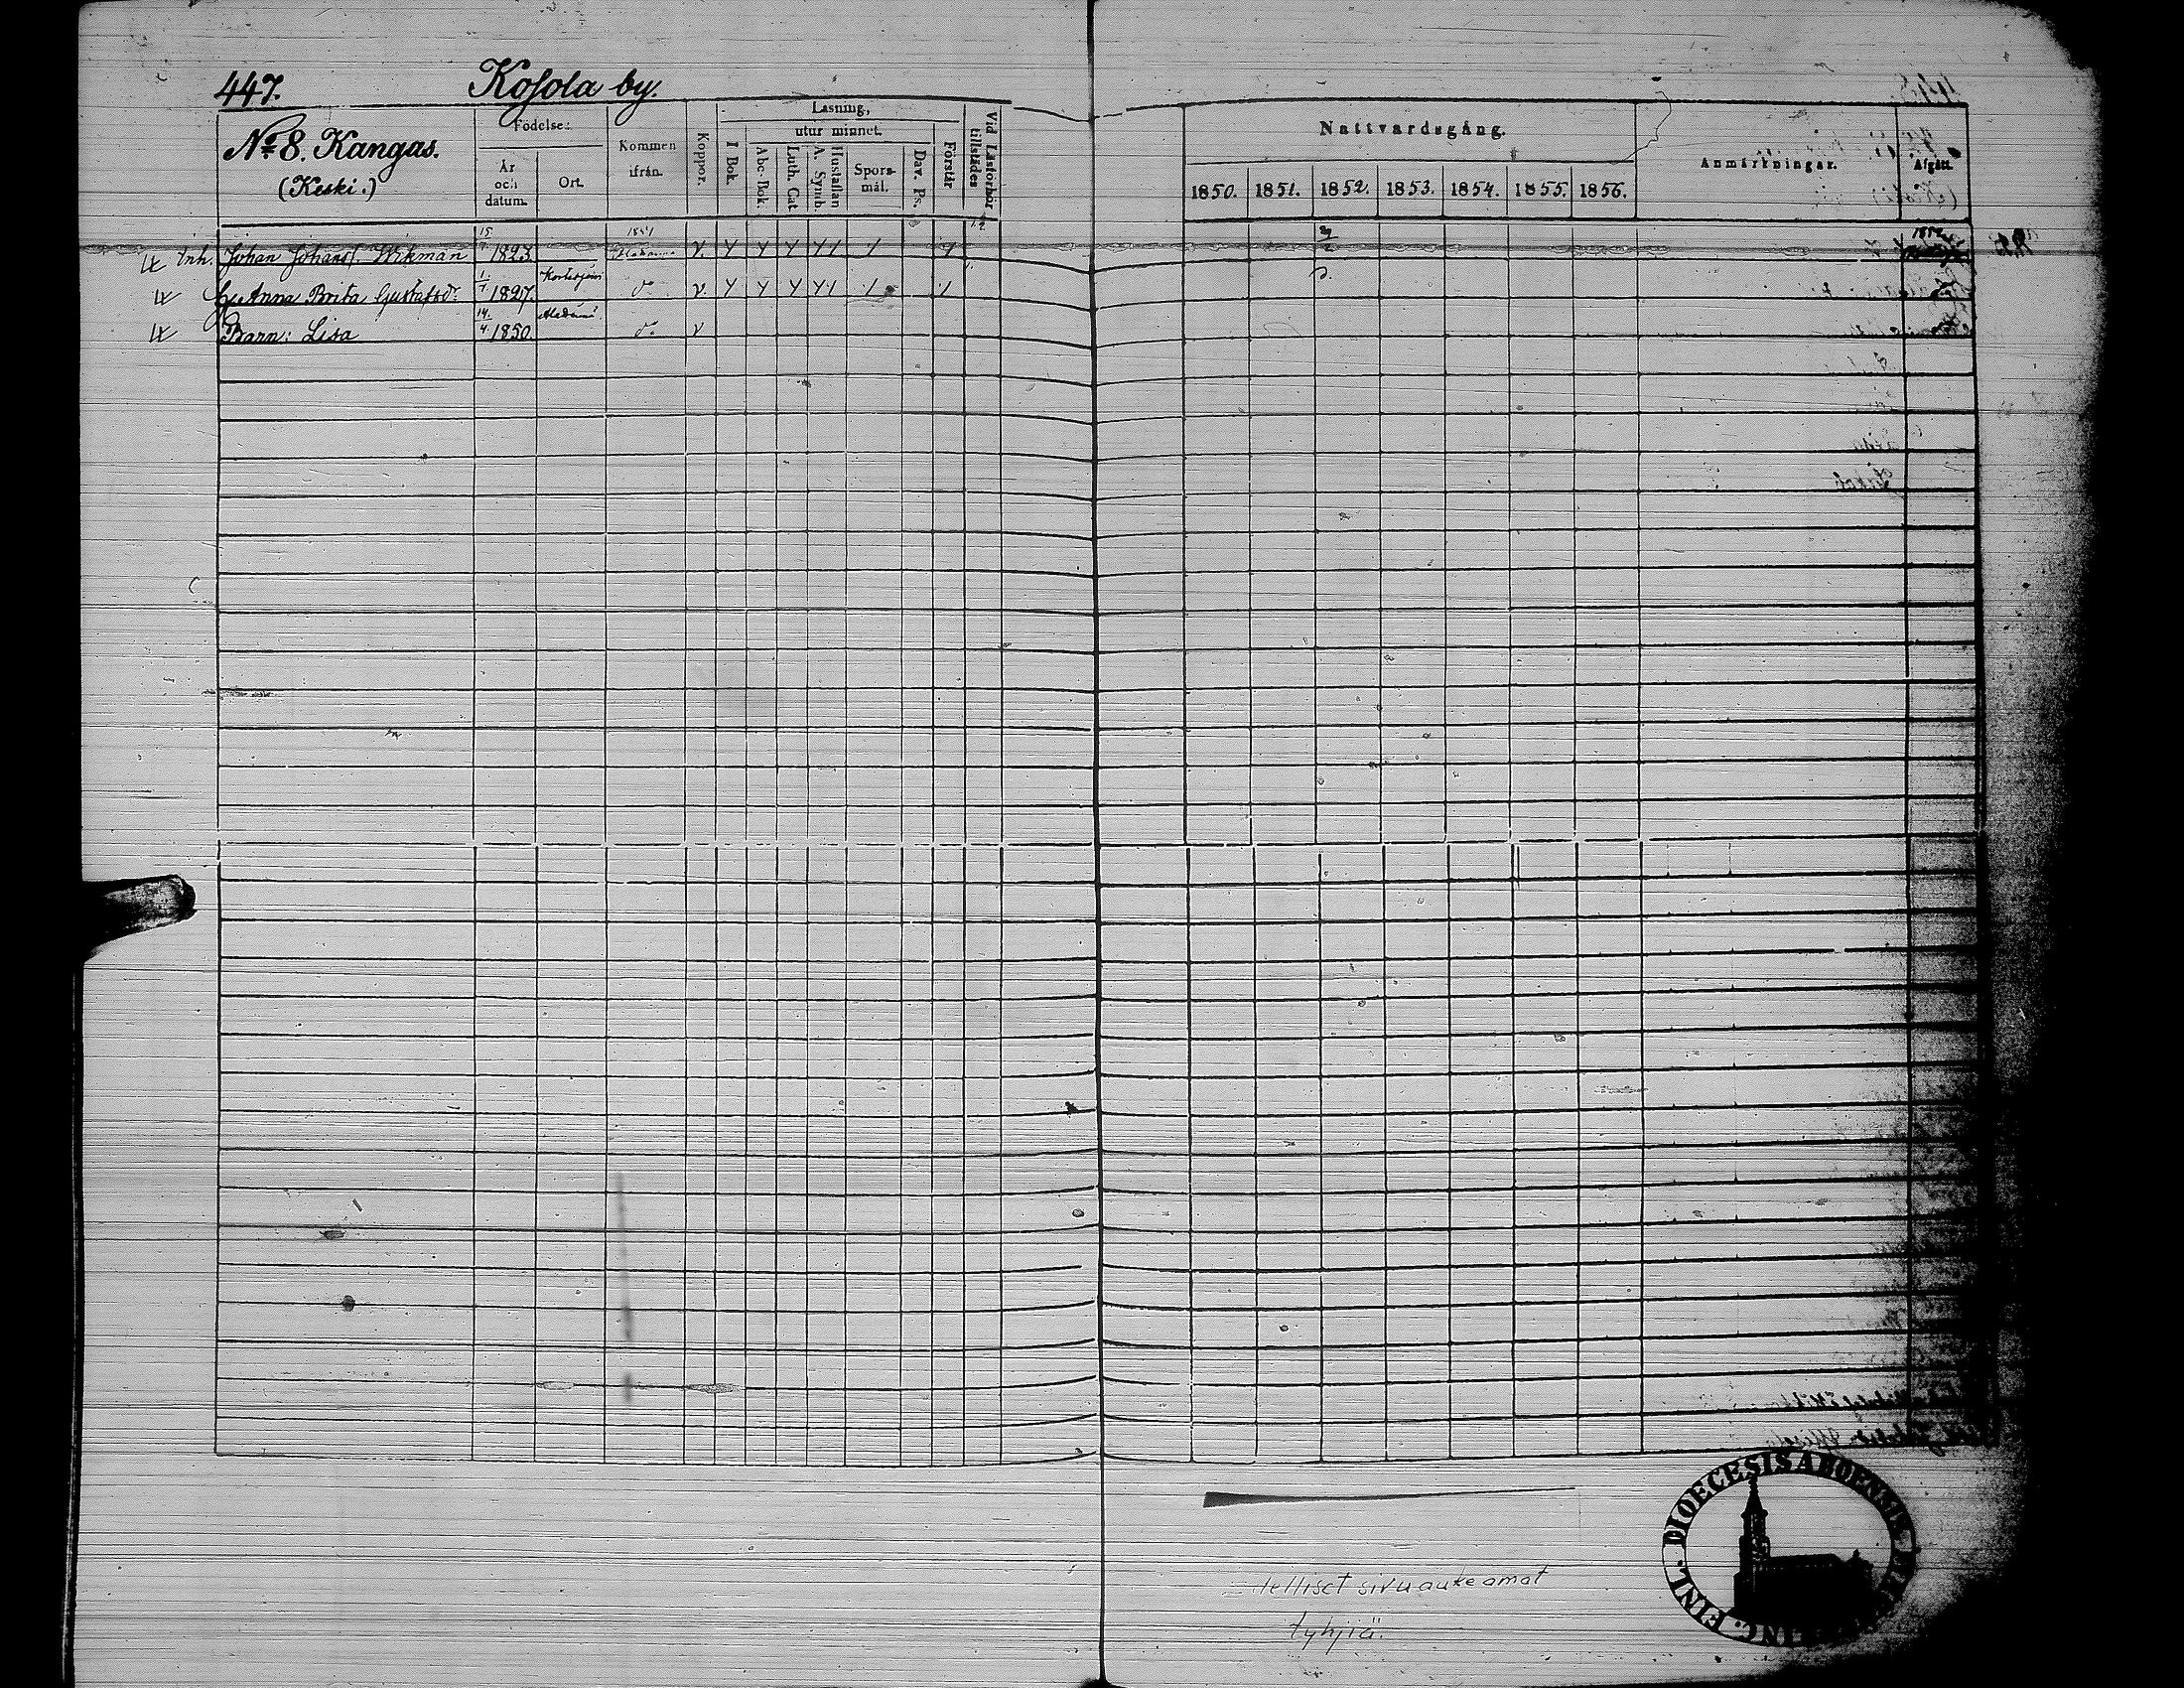 447. Kosola by.
No 8. Kangas.
(Keski.)
Födelse:
År och datum.
Ort.
Kommen ifrån.
Koppor.
Läsning,
I Bok.
utur minnet.
Abc-Bok.
Luth. Cat.
A. Symb.
Hustaflan
Spors-mål.
Dav. Ps.
Förstår
Vid Läsförhör tillstädes
Nattvardsgång.
1850. 1851. 1852. 1853. 1854. 1855. 1856.
Anmärkningar.
Afgått.
Inh. Johan Johanss. Wikman 15/7 1823. 1851 v.
Hu Anna Brita Gustafsdr 1/1 1827. Kortesjärvi do v.
Barn: Lisa 14/4 1850. do v
sivuaukeamat
tyhjiä.
DIOECESIS ABOENSIS
FINL.